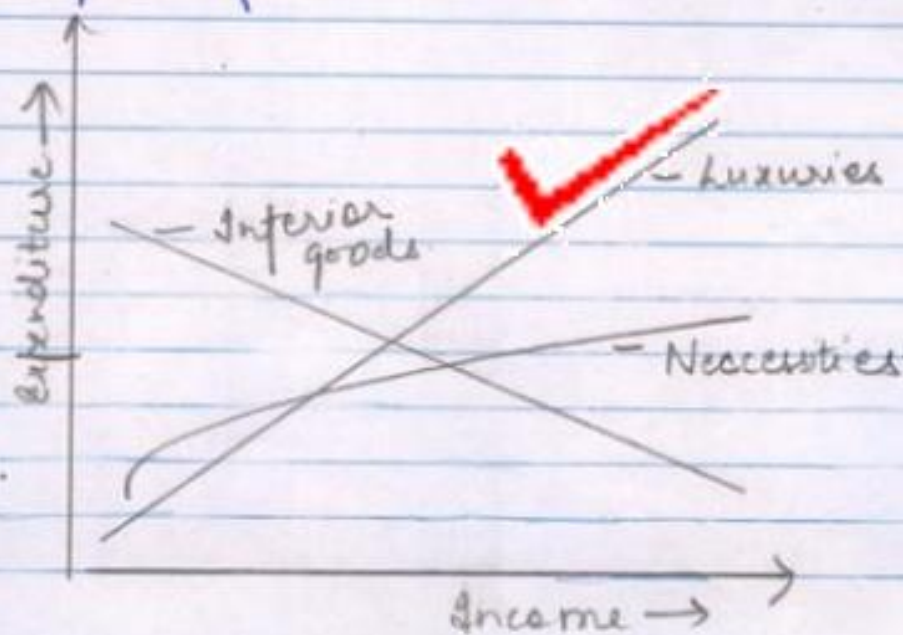 Expenditure →
– Inferior
goods
– Luxuries
– Neccessties
Income →